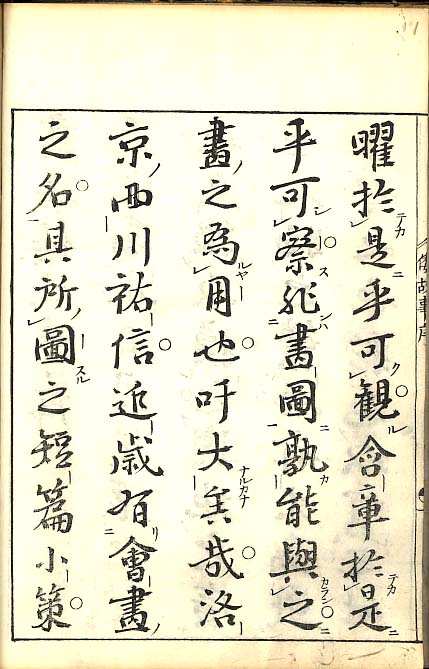 曜於是乎可観含章於是
乎可察非畫圖孰能與之
畫之為用也吁大矣哉洛
京西川祐信近歳有會畫
之名其所圖之短篇小策
故事序